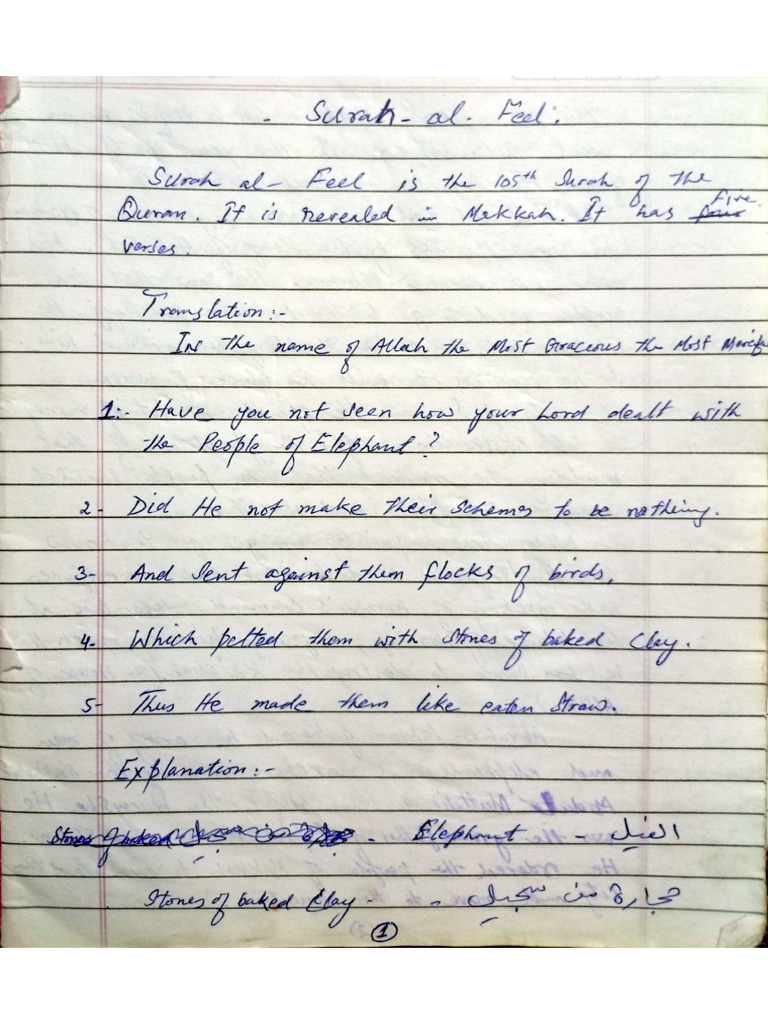 - Surah - al - Feel:
Surah al - Feel is the 105th Surah of the
Quran. It is revealed in Mekkah. It has five
verses.
Translation:-
In the name of Allah the Most Gracious the Most
1:- Have you not seen how your Lord dealt with
the People of Elephant?
2- Did He not make their schemes to be nothing.
3- And sent against them flocks of birds,
4- Which pelted them with stones of baked clay.
5- Thus He made them like eaten straw.
Explanation:-
- Elephant - الفيل
Stones of baked clay - - حجارة من سجيل
1